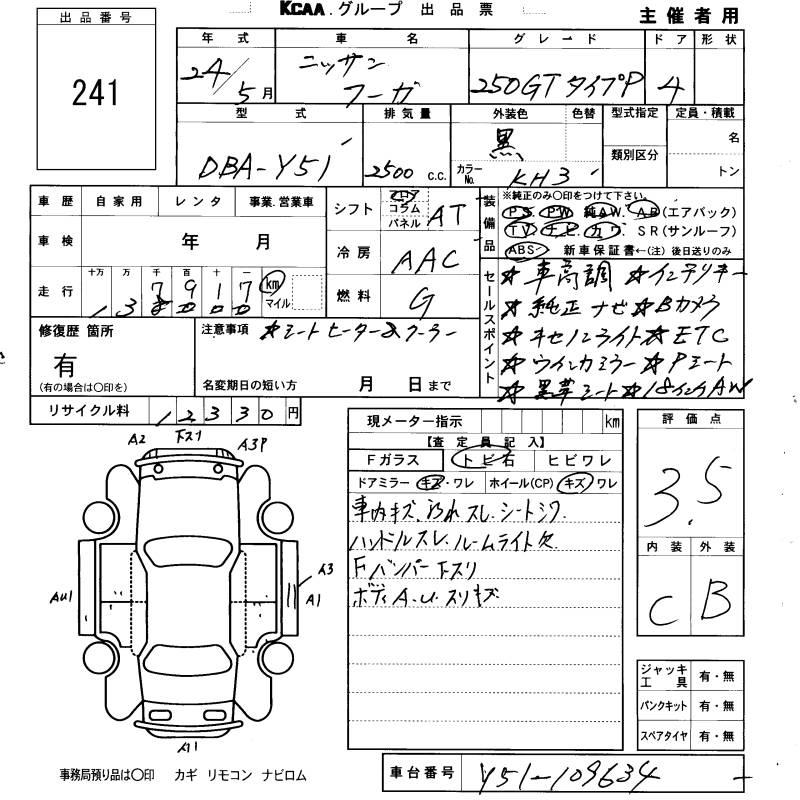 KCAA.グループ 出品票
主催者用
出品番号
241
年式 車名 グレード ドア 形状
24/5月 ニッサン フーガ 250GT タイプP 4
型式 排気量 外装色 色替 型式指定 定員・積載
DBA-Y51 2500 C.C. 黒 カラーNo. KH3 類別区分 名 トン
車歴 自家用 レンタ 事業.営業車
車検 年 月
走行 十万 万 千 百 十 一 km マイル
137917
シフト フロア コラム パネル AT
冷房 AAC
燃料 G
装備品 ※純正のみ〇印をつけて下さい。
PS. PW. 純AW. AB(エアバック)
TV. ナビ. カワ. SR(サンルーフ)
ABS 新車保証書←(注) 後日送りのみ
セールスポイント
☆車高調 ☆インテリキー
☆純正ナビ ☆Bカメラ
☆キセノンライト ☆ETC
☆ウインカミラー ☆Pシート
☆黒革シート ☆18インチAW
修復歴 箇所
有
(有の場合は〇印を)
注意事項 ☆シートヒーター&クーラー
名変期日の短い方 月 日まで
リサイクル料 12330円
現メーター指示 km
【査定員記入】
Fガラス トビ石 ヒビワレ
ドアミラー キズ・ワレ ホイール(CP) キズ・ワレ
車内キズ、汚れ スレ シートシワ
ハンドルスレ ルームライト欠
Fバンパー下スリ
ボディA.U.スリキズ
評価点
3.5
内装 外装
C B
A2 下スリ A3P
AU1
A3
A1
A1
ジャッキ工具 有・無
パンクキット 有・無
スペアタイヤ 有・無
事務局預り品は〇印 カギ リモコン ナビロム
車台番号 Y51-109634